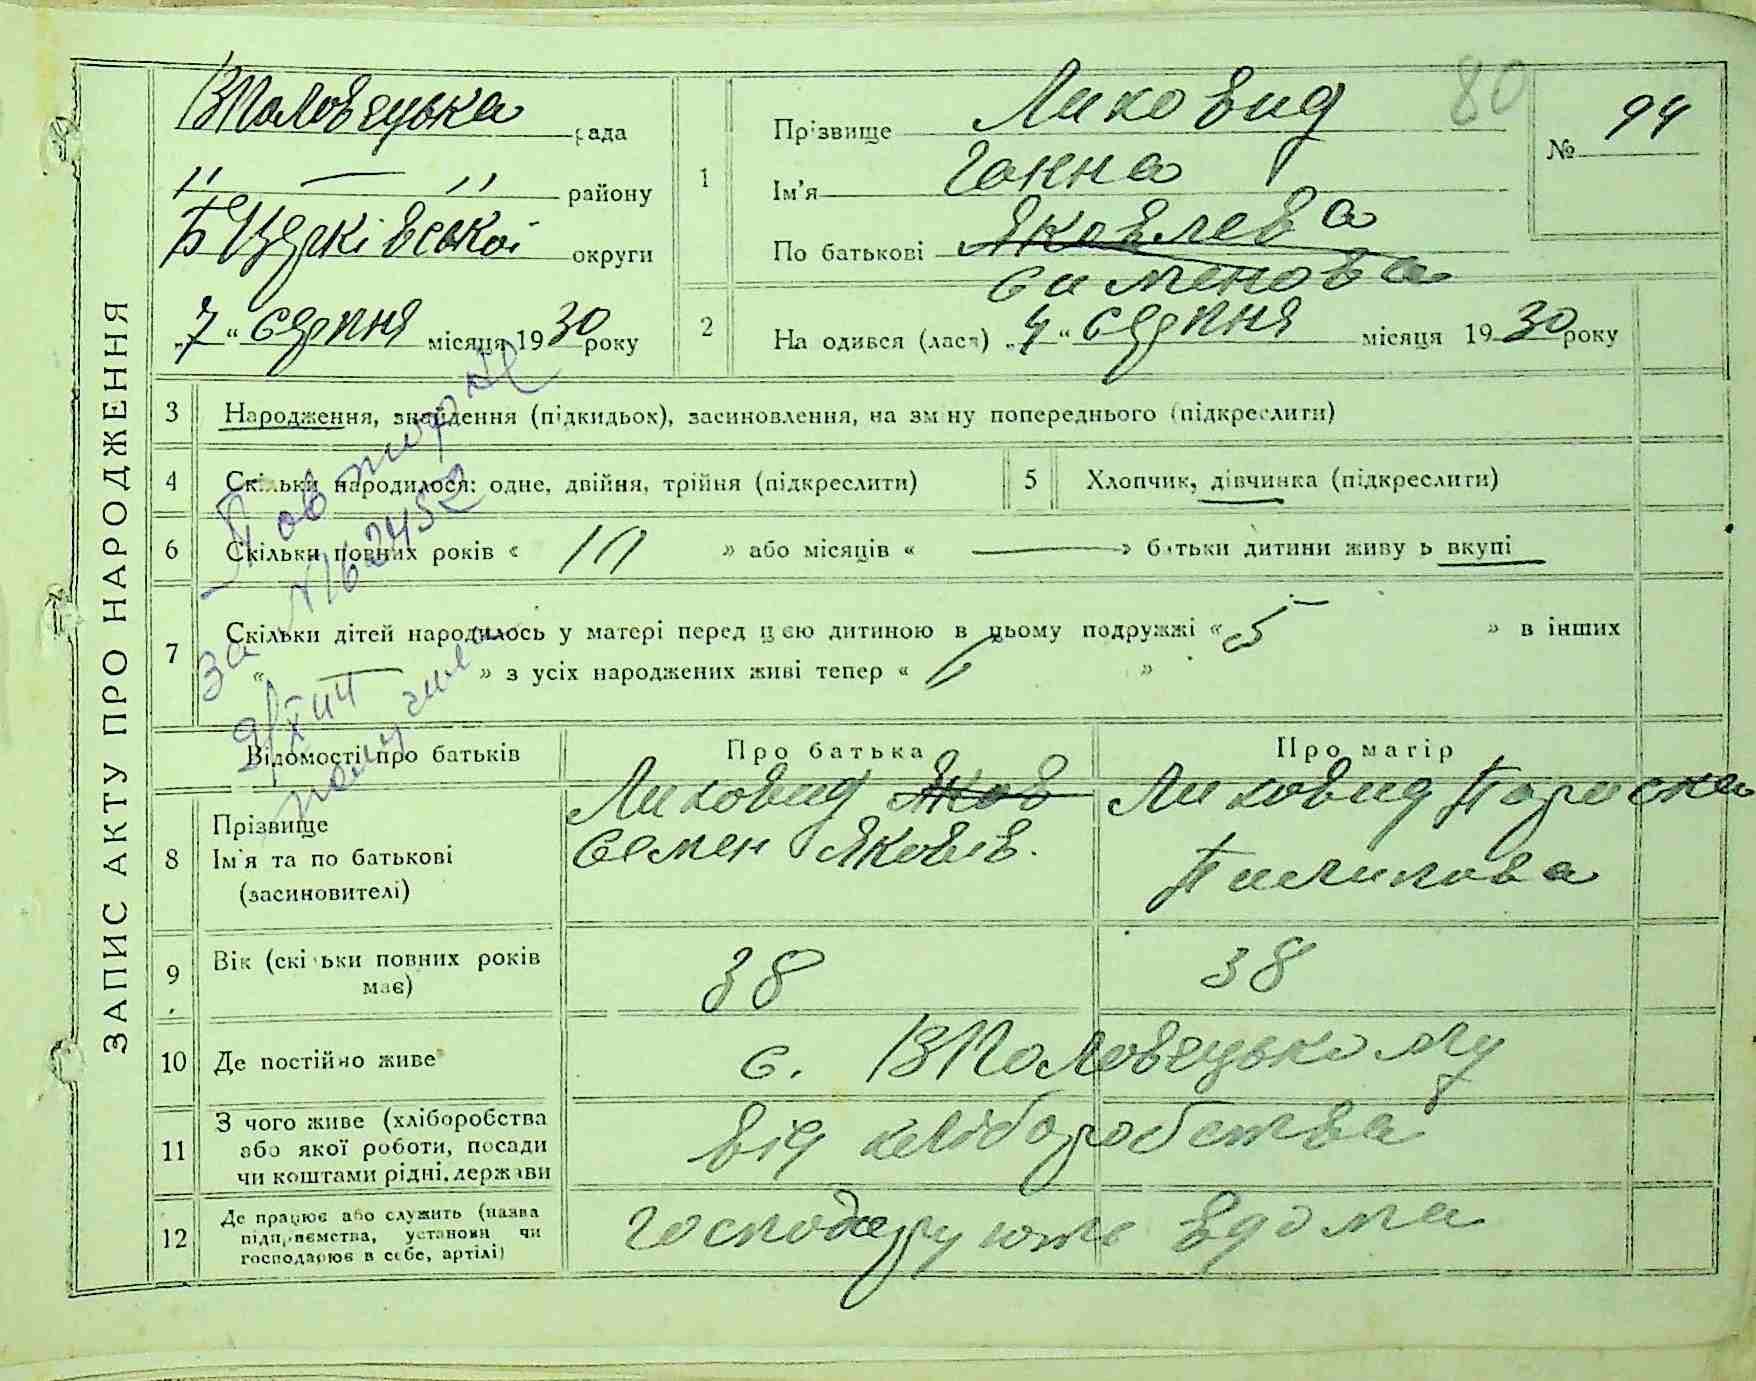 80
ЗАПИС АКТУ ПРО НАРОДЖЕННЯ
ВПоловецька рада
" — " району
БЦерківської округи
„7“ серпня місяця 1930 року
1 Прізвище Лиховид
Ім'я Ганна
По батькові Яковлева
Семенова
№ 94
2 На одився (лася) „4“ серпня місяця 1930 року
3 Народження, знайдення (підкидьох), засиновлення, на зміну попереднього (підкреслити)
4 Скільки народилося: одне, двійня, трійня (підкреслити) 5 Хлопчик, дівчинка (підкреслити)
6 Скільки повних років « » або місяців « — » батьки дитини живу ь вкупі
7 Скільки дітей народилось у матері перед цією дитиною в цьому подружжі « 5 » в інших
« — » з усіх народжених живі тепер « »
Повторне
№162452
за
Відомості про батьків Про батька Про матір
8 Прізвище
Ім'я та по батькові
(засиновителі)
Лиховид Яков
Семен Яковів.
Лиховид Параска
Пилипова
9 Вік (скільки повних років має) 38 38
10 Де постійно живе с. ВПоловецькому
11 З чого живе (хліборобства
або якої роботи, посади
чи коштами рідні, держави
від хліборобства
12 Де працює або служить (назва
підприємства, установи чи
господарює в себе, артілі)
господарують вдома